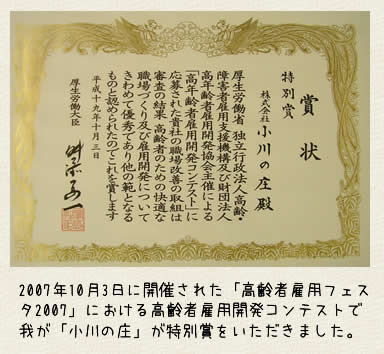 賞状
特別賞
株式会社
小川の庄 殿
厚生労働省 独立行政法人高齢・
障害者雇用支援機構及び財団法人
高年齢者雇用開発協会主催による
「高年齢者雇用開発コンテスト」に
応募された貴社の職場改善の取組は
審査の結果 高齢者のための快適な
職場づくり及び雇用開発について
きわめて優秀であり他の範となる
ものと認められたのでこれを賞します
平成十九年十月三日
厚生労働大臣
2007年10月3日に開催された「高齢者雇用フェス
タ2007」における高齢者雇用開発コンテストで
我が「小川の庄」が特別賞をいただきました。